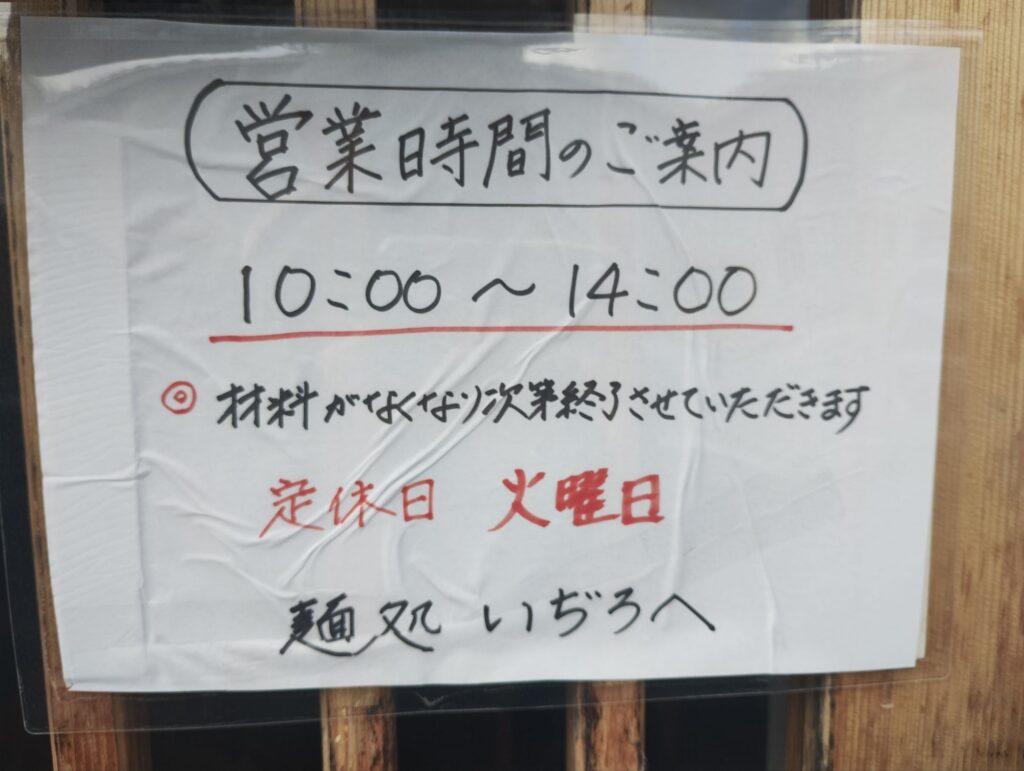 営業時間のご案内
10:00 〜 14:00
◎ 材料がなくなり次第終了させていただきます
定休日 火曜日
麺処 いぢろへ